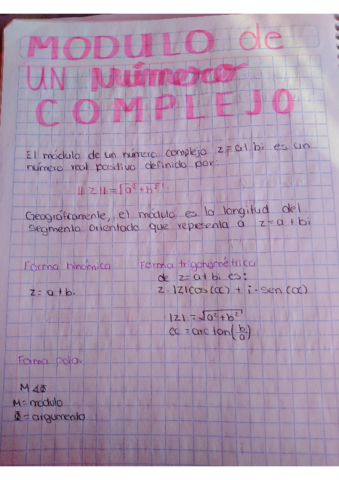 MODULO de
UN Número
COMPLEJO
El módulo de un número complejo z = a + bi es un
número real positivo definido por:
|| z || = √a² + b²
Geográficamente, el módulo es la longitud del
segmento orientado que representa a z = a + bi
Forma binómica
z = a + b.
Forma trigonométrica
de z = a + bi es:
z · |z| cos (α) + i · sen (α)
|z| = √a² + b²
α = arc tan (b/a)
Forma polar
M∡Φ
M = modulo
Φ = argumento